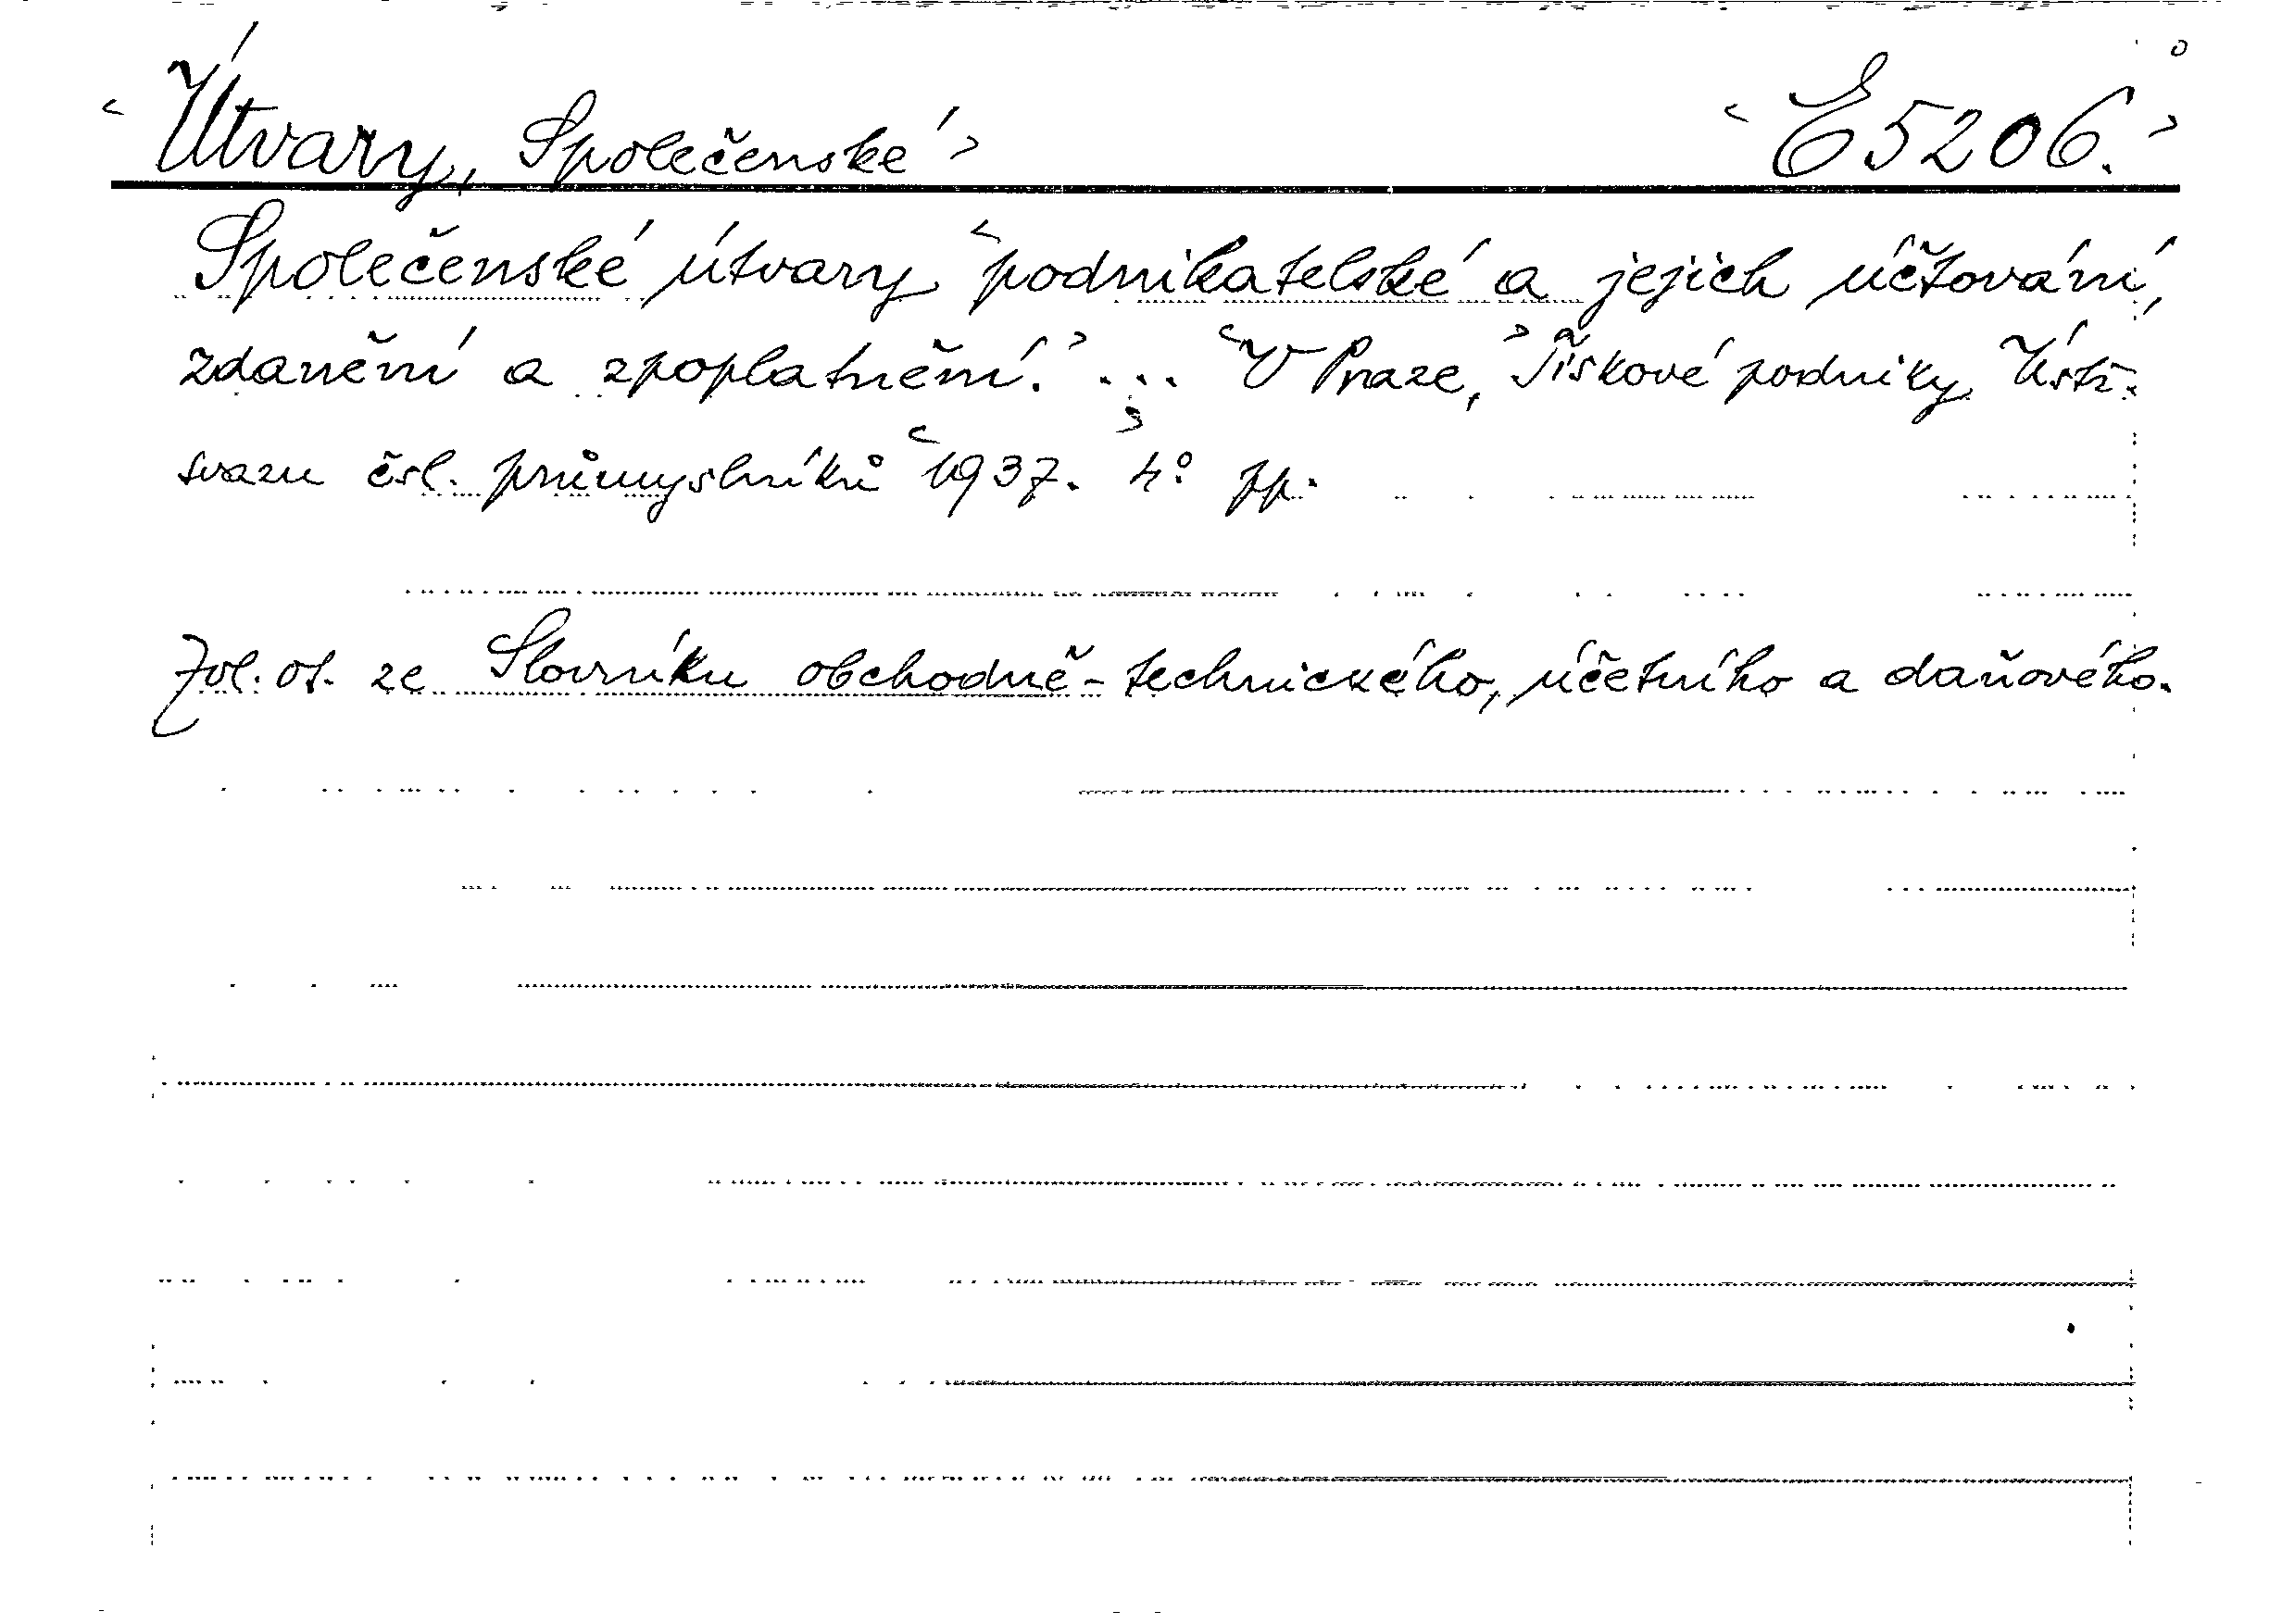 Útvary, Společenské E5206.
Společenské útvary podnikatelské a jejich účtování,
zdanění a zpoplatnění. ... V Praze, Tiskové podniky Ústř.
svazu čsl. průmyslníků 1937. 4° pp.
Zvl. ot. ze Slovníku obchodně-technického, účetního a daňového.